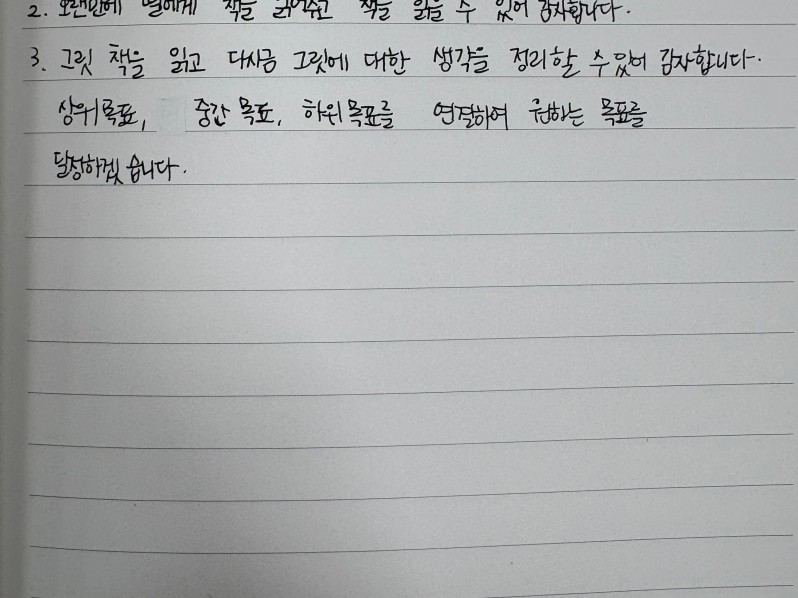 2. 오랜만에 딸에게 책을 읽어주고 책을 읽을 수 있어 감사합니다.
3. 그릿 책을 읽고 다시금 그릿에 대한 생각을 정리할 수 있어 감사합니다.
상위목표, 중간 목표, 하위목표를 연결하여 원하는 목표를
달성하겠습니다.